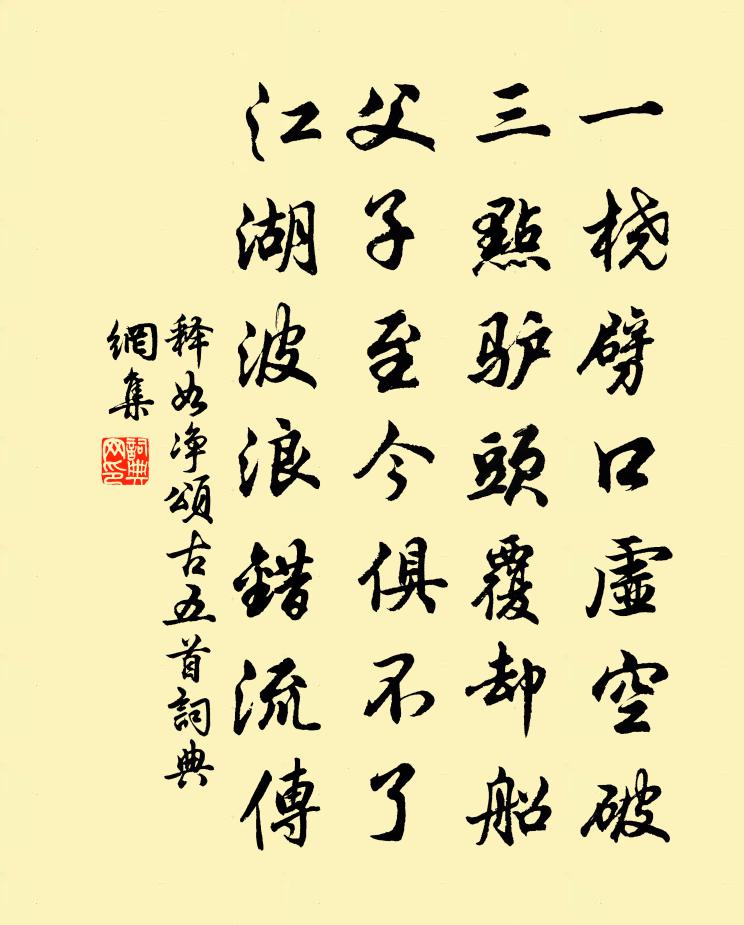 一桡劈口虚空破
三點驴頭覆却船
父子至今俱不了
江湖波浪錯流傳
释如净頌古五首詞典
網集
詞典
网印